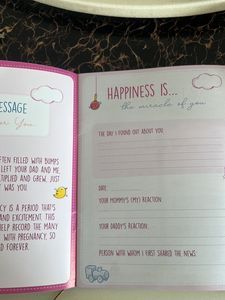 ESSAGE
You
FTEN FILLED WITH BUMPS
LEFT YOUR DAD AND ME,
TIPLIED AND GREW, JUST
WAS YOU.
CY IS A PERIOD THAT'S
AND EXCITEMENT. THIS
HELP RECORD THE MANY
WITH PREGNANCY, SO
D FOREVER.
HAPPINESS IS...
the miracle of you
THE DAY I FOUND OUT ABOUT YOU
DATE
YOUR MOMMY'S (MY) REACTION
YOUR DADDY'S REACTION
PERSON WITH WHOM I FIRST SHARED THE NEWS